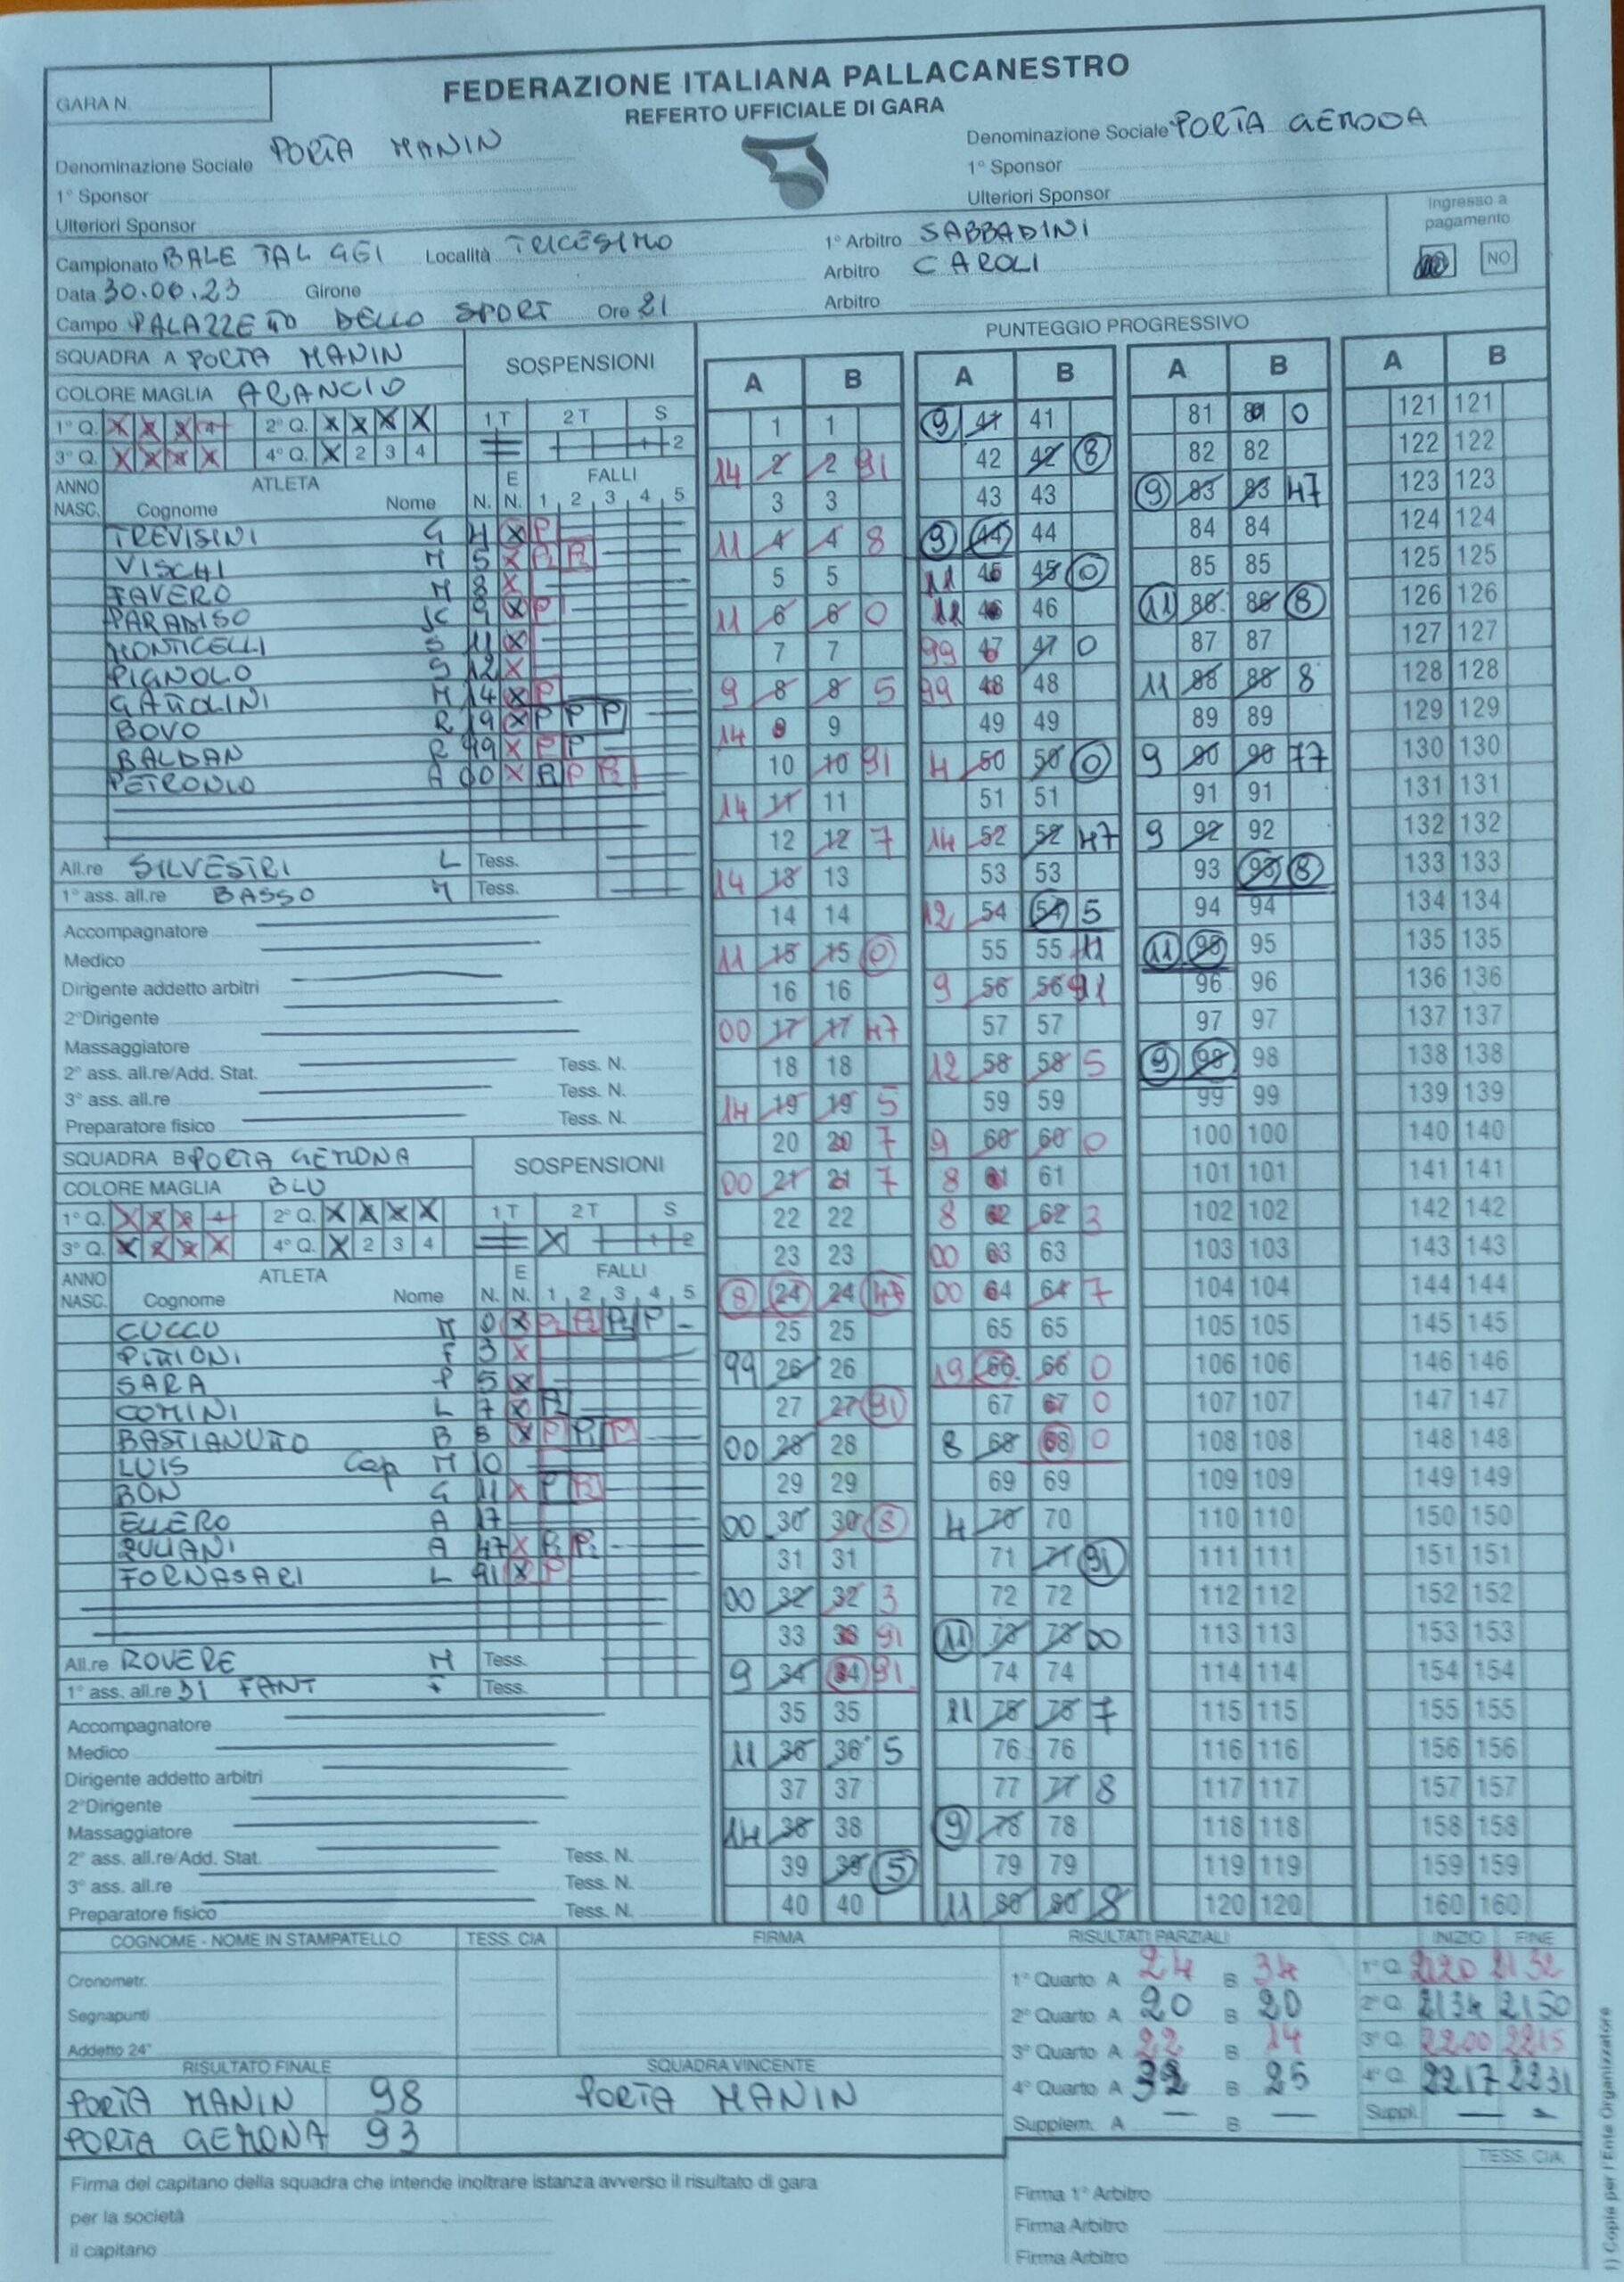 FEDERAZIONE ITALIANA PALLACANESTRO
REFERTO UFFICIALE DI GARA
GARA N.
Denominazione Sociale PORTA MANIN
1° Sponsor
Ulteriori Sponsor
Denominazione Sociale PORTA GEMODA
1° Sponsor
Ulteriori Sponsor
Ingresso a pagamento
NO
Campionato BALE TAL GEI Località TRICESIMO
Data 30.06.23 Girone
Campo PALAZZETTO DELLO SPORT Ore 21
1° Arbitro SABBADINI
Arbitro CAROLI
Arbitro
PUNTEGGIO PROGRESSIVO
SQUADRA A PORTA MANIN
COLORE MAGLIA ARANCIO
SOSPENSIONI
1° Q. 2° Q. X X X X 1 T 2 T S
3° Q. X X X X 4° Q. X 2 3 4
ANNO NASC. ATLETA Cognome Nome N. E N. FALLI 1 2 3 4 5
TREVISINI G 4 X P
VISCHI M 5 X
FAVERO M 8 X
PARADISO JC 9 X P
MONTICELLI S 11 X
PIGNOLO S 12 X
M 14 X P
BOVO R 19 X P P P
BALDAN R 99 X P P
PETRONIO A 00 X
All.re SILVESTRI L Tess.
1° ass. all.re BASSO M Tess.
Accompagnatore
Medico
Dirigente addetto arbitri
2°Dirigente
Massaggiatore
2° ass. all.re/Add. Stat. Tess. N.
3° ass. all.re Tess. N.
Preparatore fisico Tess. N.
SQUADRA B PORTA GEMONA
COLORE MAGLIA BLU
SOSPENSIONI
1° Q. 2° Q. X X X X 1 T 2 T S
3° Q. X X X X 4° Q. X 2 3 4
ANNO NASC. ATLETA Cognome Nome N. E N. FALLI 1 2 3 4 5
CUCCU M 0 X
PITTIONI F 3 X
SARA P 5 X
COMINI L 7 X
BASTIANUTTO B 8 X
LUIS Cap M 10
BON G 11 X
ELLERO A 17
ZULIANI A 47 X
FORNASARI L 91 X P
All.re ROVERE M Tess.
1° ass. all.re DI FANT F Tess.
Accompagnatore
Medico
Dirigente addetto arbitri
2°Dirigente
Massaggiatore
2° ass. all.re/Add. Stat. Tess. N.
3° ass. all.re Tess. N.
Preparatore fisico Tess. N.
A B A B A B A B
1 1 9 41 41 81 81 0 121 121
14 2 2 91 42 42 8 82 82 122 122
3 3 43 43 9 83 83 47 123 123
11 4 4 8 9 44 44 84 84 124 124
5 5 11 45 45 0 85 85 125 125
11 6 6 0 11 46 46 11 86 86 8 126 126
7 7 99 47 47 0 87 87 127 127
9 8 8 5 99 48 48 11 88 88 8 128 128
14 9 9 49 49 89 89 129 129
10 10 91 4 50 50 0 9 90 90 77 130 130
14 11 11 51 51 91 91 131 131
12 12 7 14 52 52 47 9 92 92 132 132
14 13 13 53 53 93 93 8 133 133
14 14 12 54 54 5 94 94 134 134
11 15 15 0 55 55 11 11 95 95 135 135
16 16 9 56 56 91 96 96 136 136
00 17 17 47 57 57 97 97 137 137
18 18 12 58 58 5 9 98 98 138 138
14 19 19 5 59 59 99 99 139 139
20 20 7 9 60 60 0 100 100 140 140
00 21 21 7 8 61 61 101 101 141 141
22 22 8 62 62 3 102 102 142 142
23 23 00 63 63 103 103 143 143
8 24 24 47 00 64 64 7 104 104 144 144
25 25 65 65 105 105 145 145
99 26 26 19 66 66 0 106 106 146 146
27 27 91 67 67 0 107 107 147 147
00 28 28 8 68 68 0 108 108 148 148
29 29 69 69 109 109 149 149
00 30 30 8 4 70 70 110 110 150 150
31 31 71 71 91 111 111 151 151
00 32 32 3 72 72 112 112 152 152
33 33 91 11 73 73 00 113 113 153 153
9 34 34 91 74 74 114 114 154 154
35 35 11 75 75 7 115 115 155 155
11 36 36 5 76 76 116 116 156 156
37 37 77 77 8 117 117 157 157
14 38 38 9 78 78 118 118 158 158
39 39 5 79 79 119 119 159 159
40 40 11 80 80 8 120 120 160 160
COGNOME - NOME IN STAMPATELLO TESS. CIA FIRMA
Cronometr.
Segnapunti
Addetto 24"
RISULTATI PARZIALI INIZIO FINE
1° Quarto A 24 B 34 1° Q. 2120 2132
2° Quarto A 20 B 20 2° Q. 2134 2150
3° Quarto A 22 B 14 3° Q. 2200 2215
4° Quarto A 32 B 25 4° Q. 2217 2231
Supplem. A — B — Suppl. —
RISULTATO FINALE SQUADRA VINCENTE
PORTA MANIN 98 PORTA MANIN
PORTA GEMONA 93
Firma del capitano della squadra che intende inoltrare istanza avverso il risultato di gara
per la società
il capitano
TESS. CIA
Firma 1° Arbitro
Firma Arbitro
Firma Arbitro
1) Copia per l'Ente Organizzatore